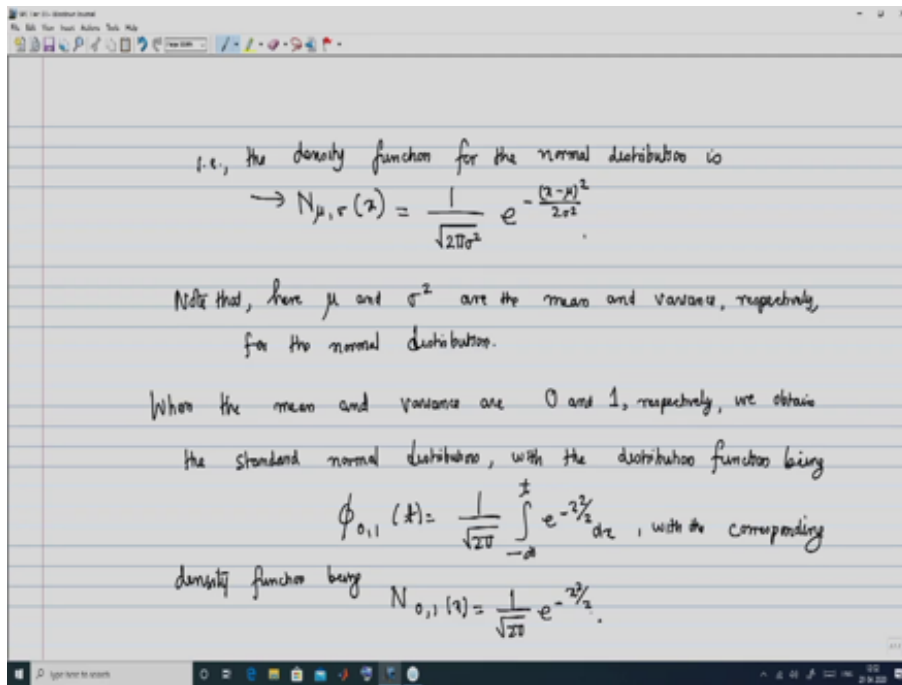 File Edit View Insert Actions Tools Help
i.e., the density function for the normal distribution is
→ N_{μ,σ}(x) = 1/√(2πσ²) e^{-(x-μ)²/2σ²}.
Note that, here μ and σ² are the mean and variance, respectively,
for the normal distribution.
When the mean and variance are 0 and 1, respectively, we obtain
the standard normal distribution, with the distribution function being
ϕ_{0,1}(t) = 1/√(2π) ∫_{-∞}^{t} e^{-x²/2} dx, with the corresponding
density function being
N_{0,1}(x) = 1/√(2π) e^{-x²/2}.
Type here to search